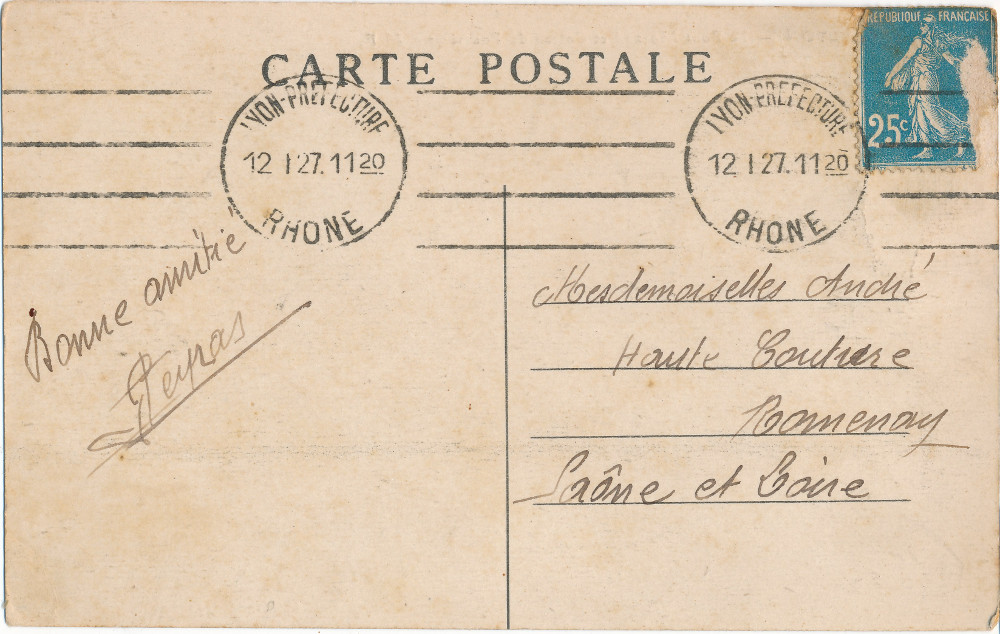 CARTE POSTALE
RÉPUBLIQUE FRANÇAISE
25c
LYON-PREFECTURE
12 I 27. 11 20
RHONE
LYON-PREFECTURE
12 I 27. 11 20
RHONE
Bonne amitié
Mesdemoiselles André
Haute Couture
Romenay
Saône et Loire